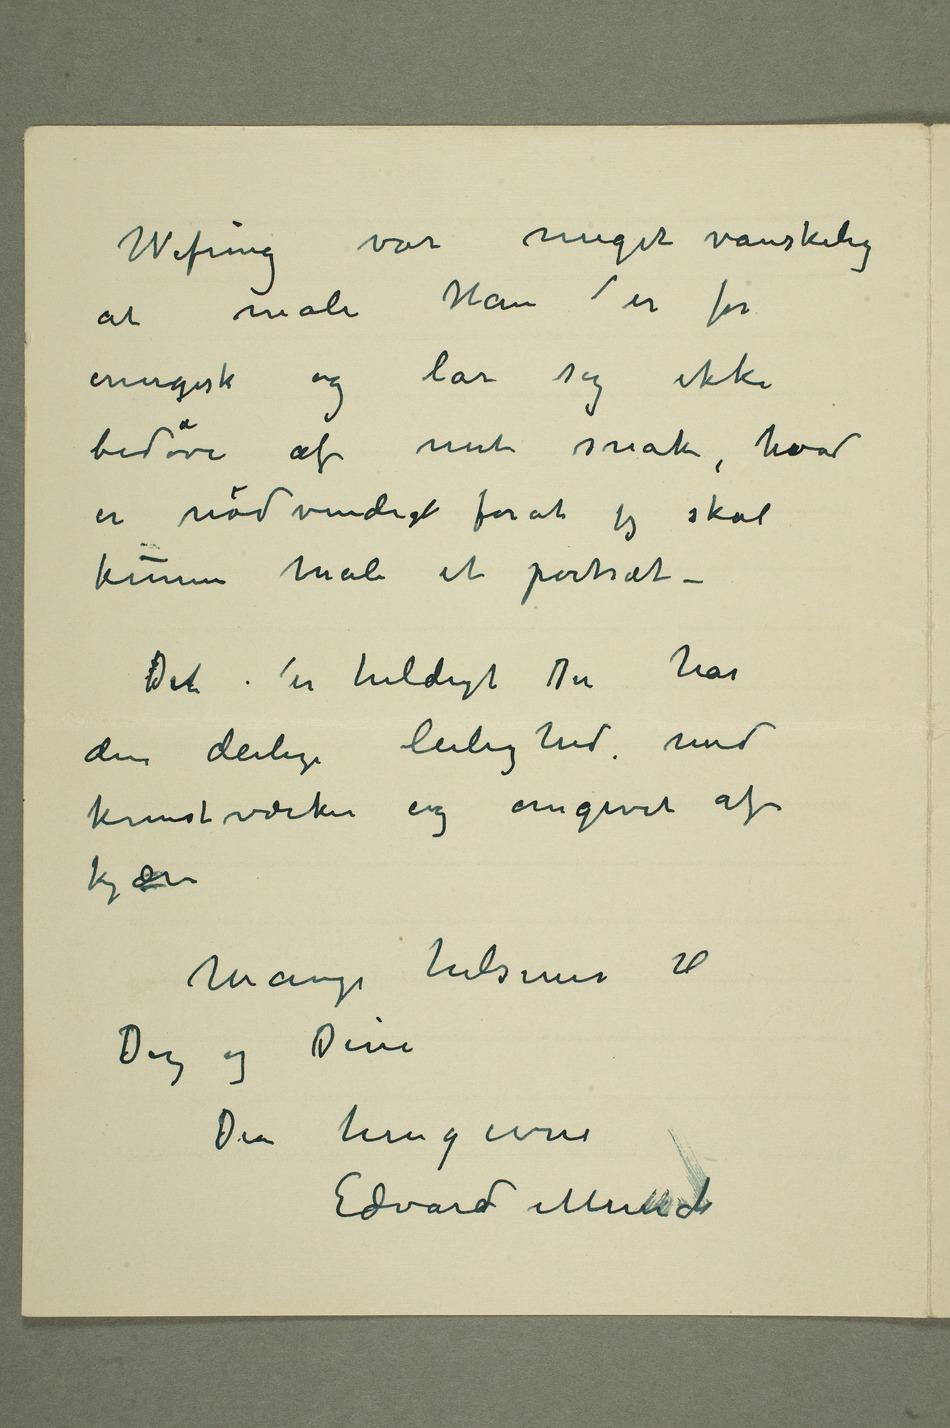 Wefring var meget vanskelig
at male Han er for
energisk og lar sig ikke
bedøve af mit snak, hvad
er nødvendigt forat jeg skal
kunne male et portræt –
Det er heldigt Du har
den deilige leilighed. med
kunstværker og omgivet af
kjære
Mange hilsener til
Dig og Dine
Din hengivne
Edvard Munch